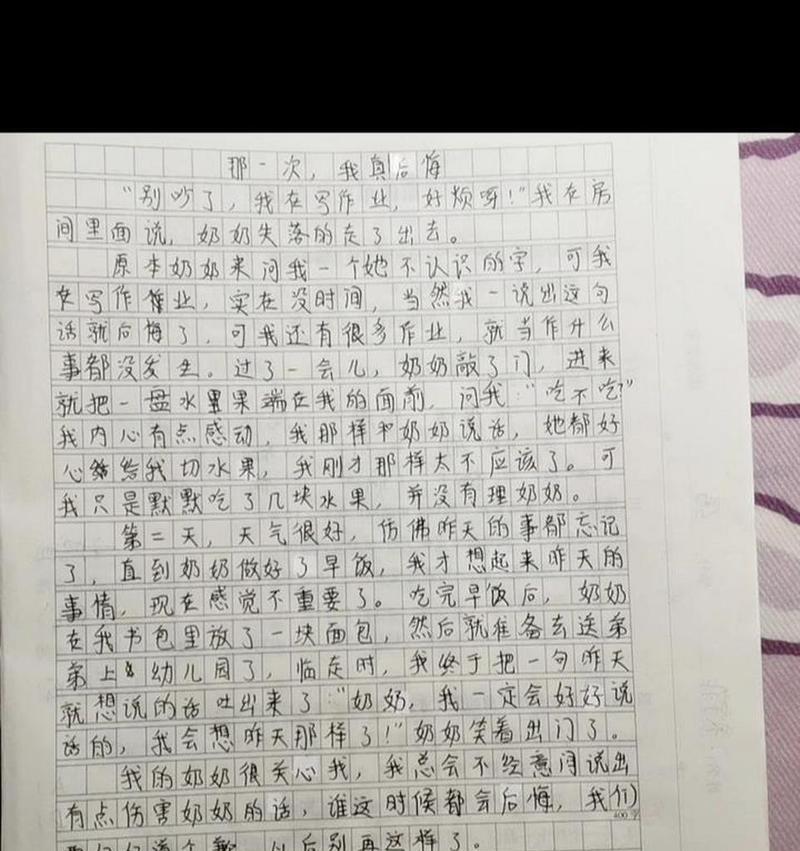 那一次，我真后悔
“别吵了，我在写作业，好烦呀！”我在房
间里面说，奶奶失落的走了出去。
原本奶奶来问我一个她不认识的字，可我
在写作业，实在没时间，当然我一说出这句
话就后悔了，可我还有很多作业，就当作什么
事都没发生。过了一会儿，奶奶敲了门，进来
就把一盘水果端在我的面前，问我：“吃不吃？”
我内心有点感动，我那样和奶奶说话，她都好
心给我切水果，我刚才那样太不应该了。可
我只是默默吃了几块水果，并没有理奶奶。
第二天，天气很好，仿佛昨天的事都忘记
了，直到奶奶做好了早饭，我才想起来昨天的
事情，现在感觉不重要了。吃完早饭后，奶奶
在我书包里放了一块面包，然后就准备去送弟
弟上幼儿园了，临走时，我终于把一句昨天
就想说的话吐出来了：“奶奶，我一定会好好说
话的，我会想昨天那样了！”奶奶笑着出门了。
我的奶奶很关心我，我总会不经意间说出
有点伤害奶奶的话，谁这时候都会后悔，我们
400字
以后别再这样了。